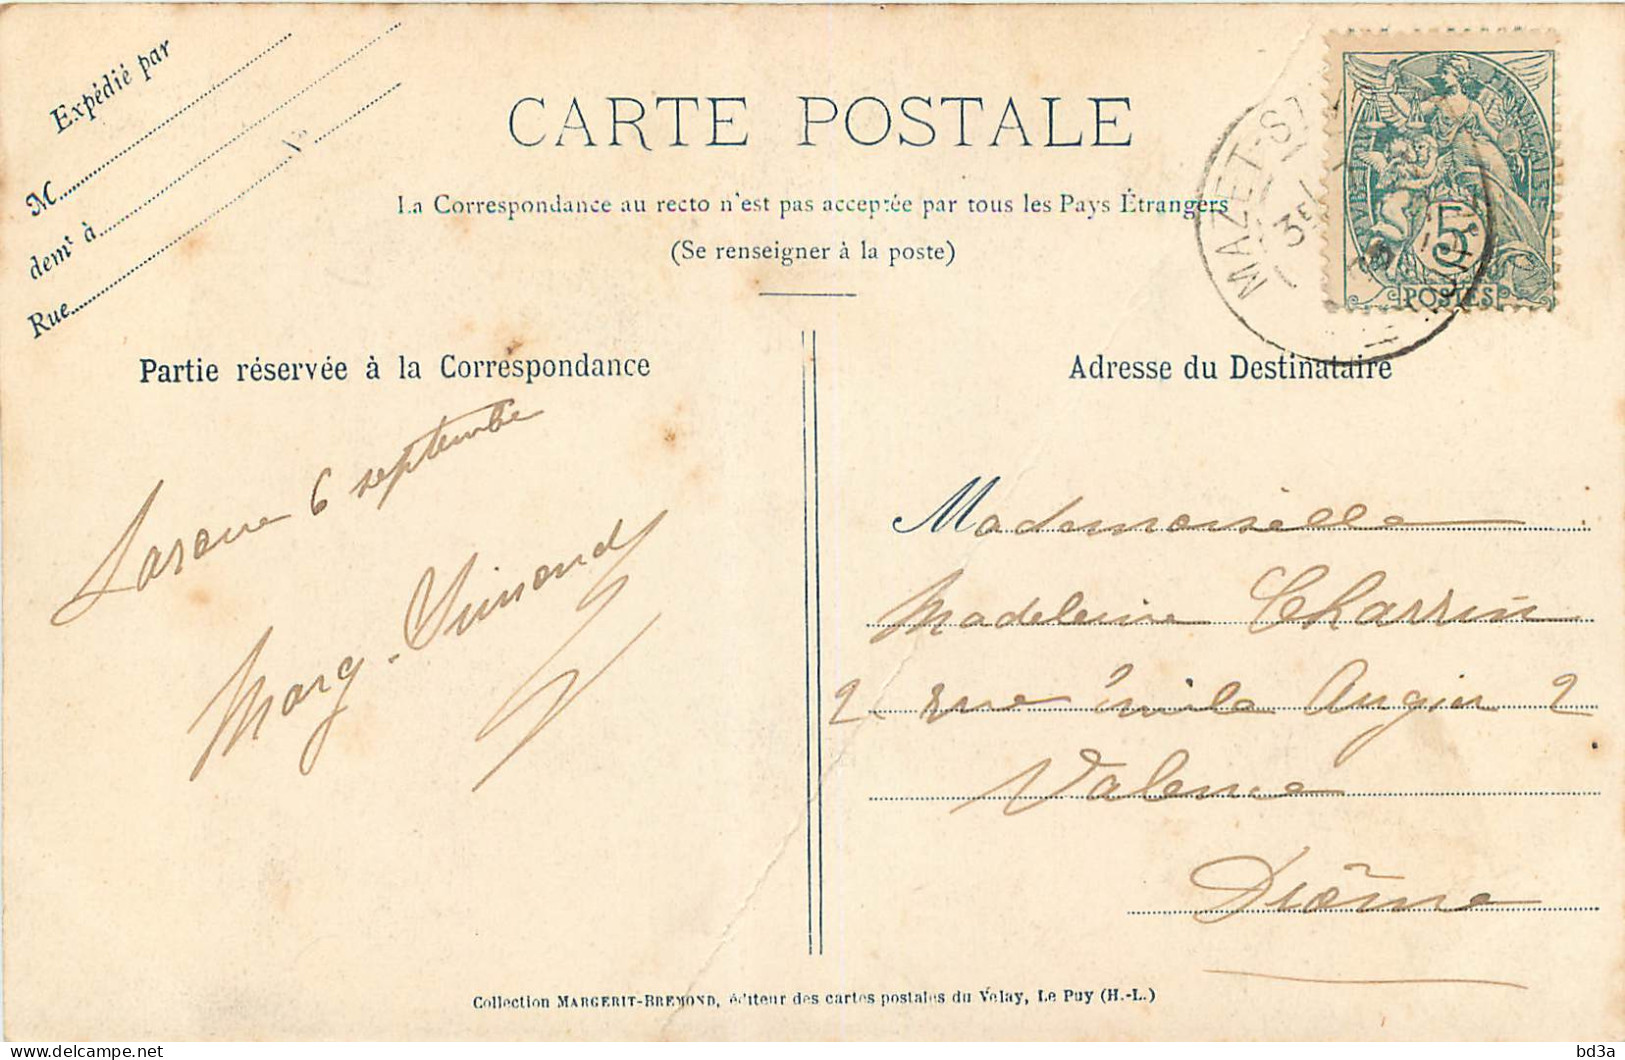 Expédié par
M
demt à
Rue
N°
CARTE POSTALE
La Correspondance au recto n'est pas acceptée par tous les Pays Étrangers
(Se renseigner à la poste)
MAZET-ST
3E
RÉPUBLIQUE FRANÇAISE
5
POSTES
Partie réservée à la Correspondance
6 septembre
Marg.
Adresse du Destinataire
Mademoiselle
Madeleine Charrin
2 rue Émile Augier 2
Valence
Drôme
Collection MARGERIT-BREMOND, éditeur des cartes postales du Velay, Le Puy (H.-L.)
bd3a